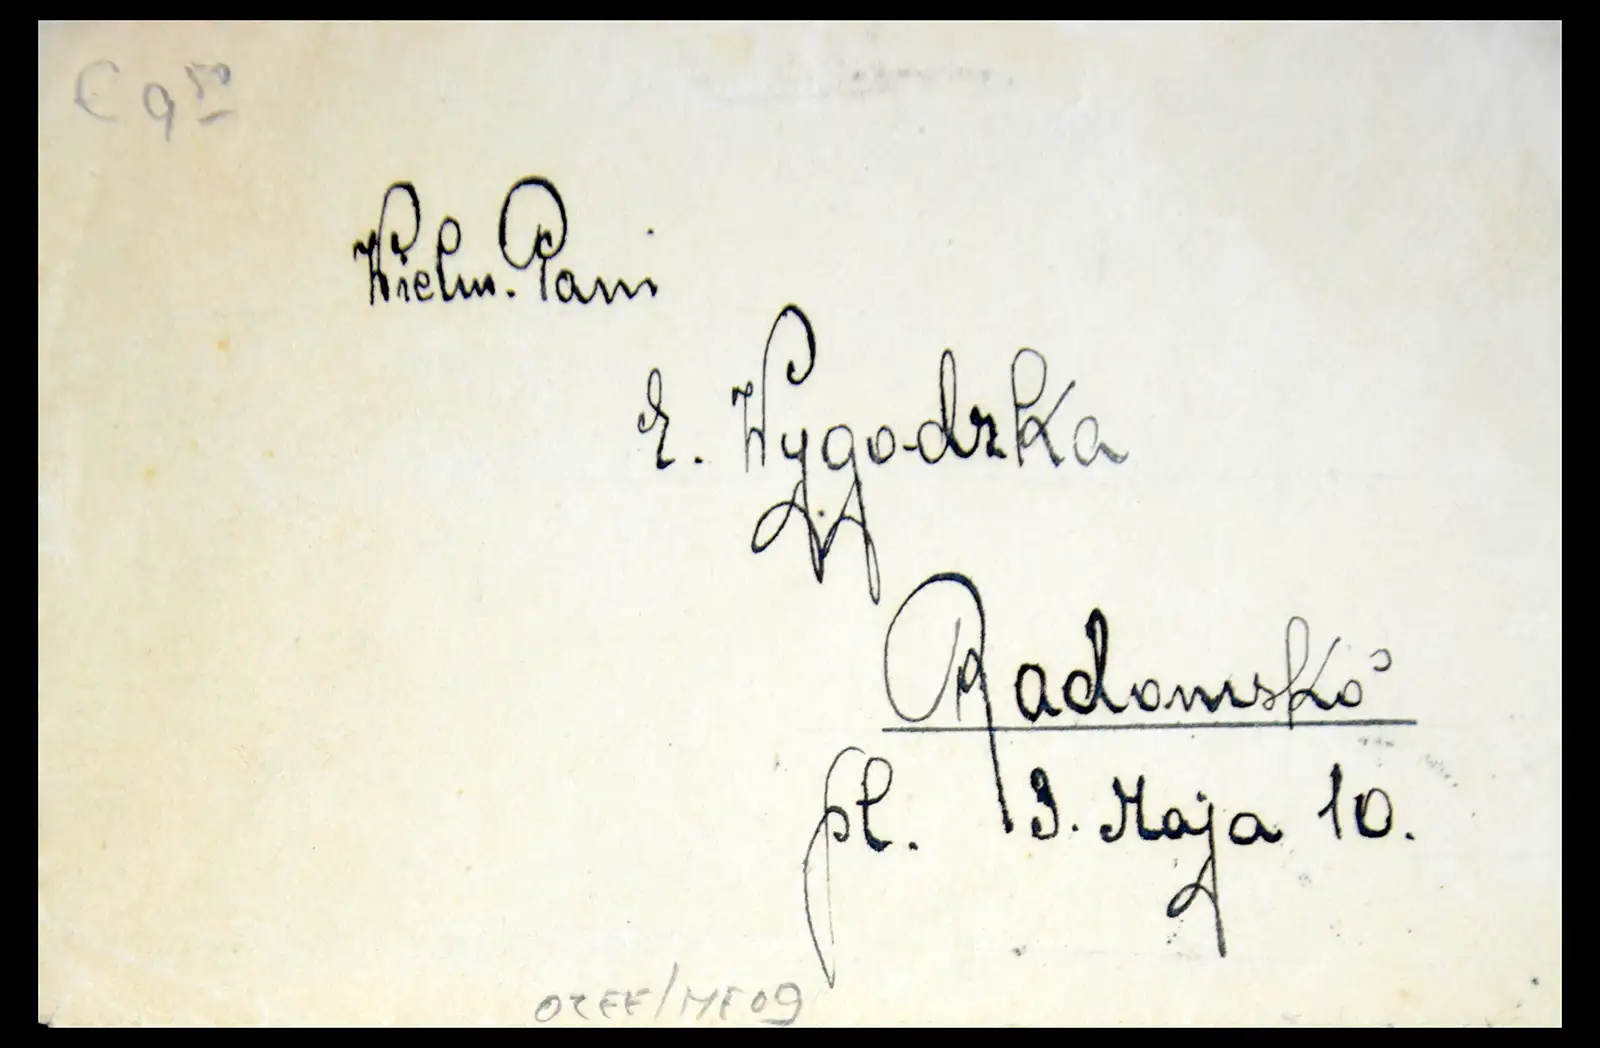 € 9 50
Wielm. Pani
E. Wygodzka
Radomsko
pl. 3. Maja 10.